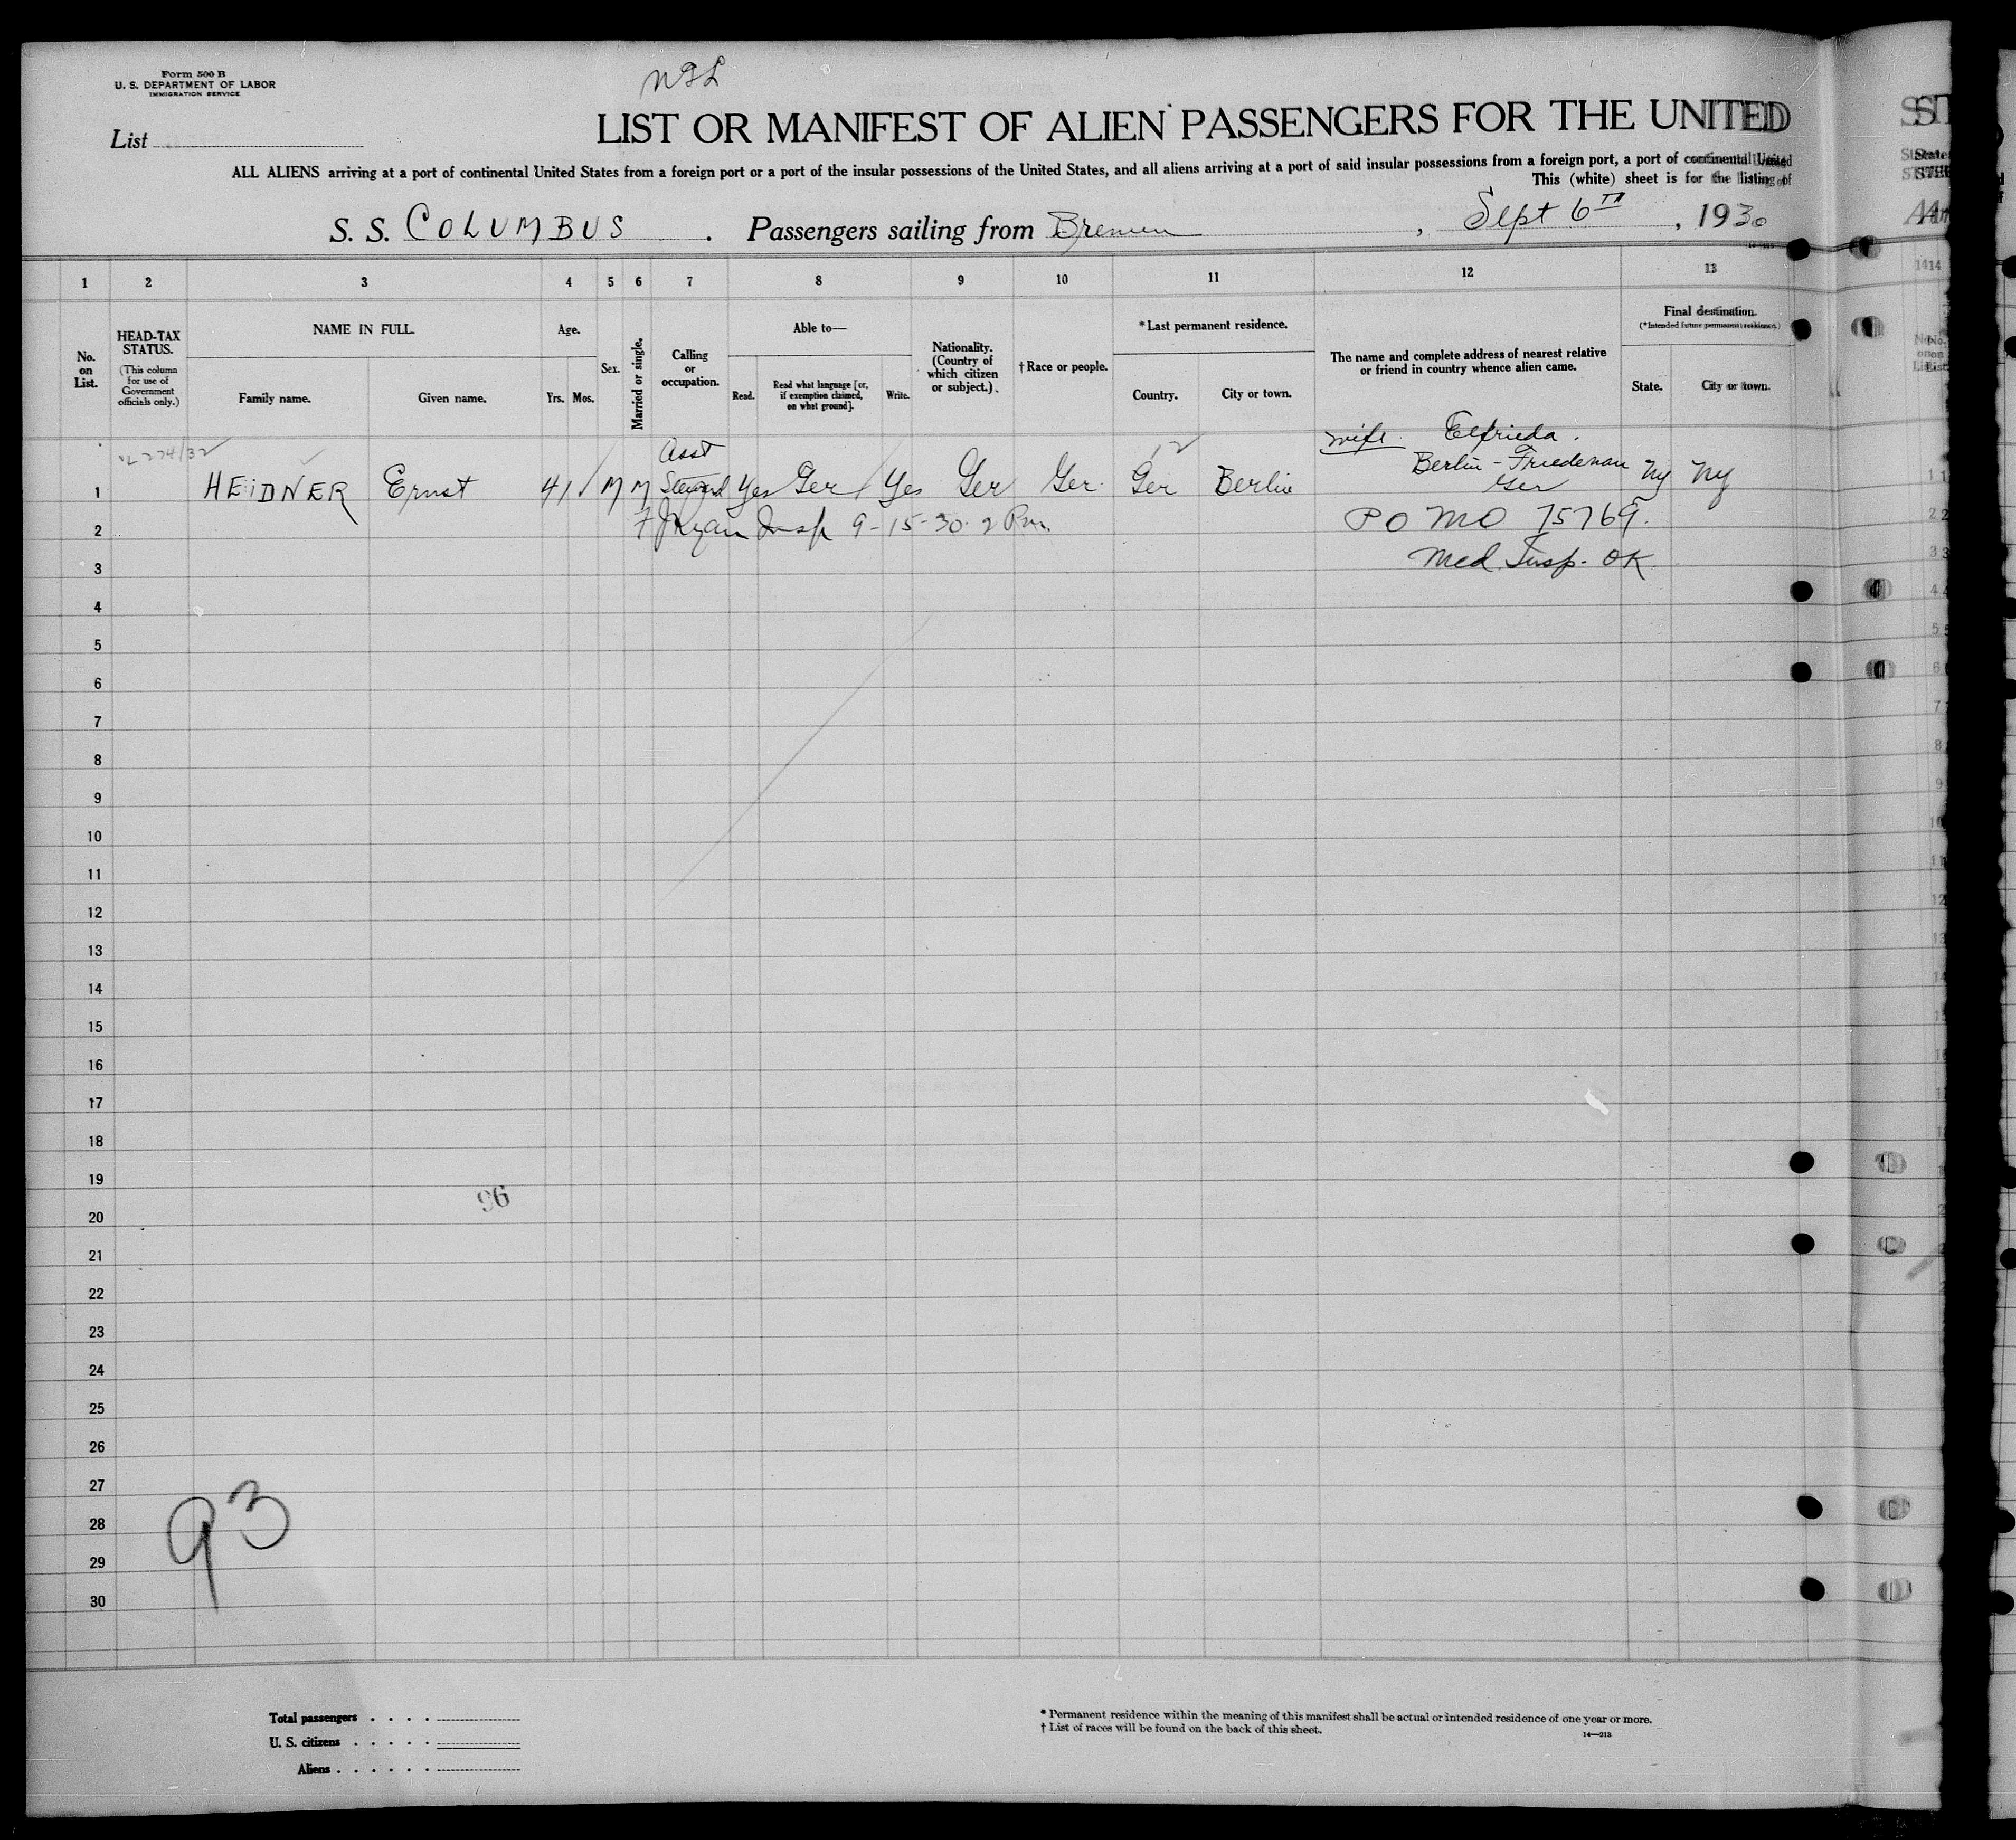 Form 500 B
U. S. DEPARTMENT OF LABOR
IMMIGRATION SERVICE
NGL
List
LIST OR MANIFEST OF ALIEN PASSENGERS FOR THE UNITED
ALL ALIENS arriving at a port of continental United States from a foreign port or a port of the insular possessions of the United States, and all aliens arriving at a port of said insular possessions from a foreign port, a port of continental United
This (white) sheet is for the listing of
S. S. COLUMBUS . Passengers sailing from Bremen , Sept 6TH , 1930
1 2 3 4 5 6 7 8 9 10 11 12 13
No. on List.
HEAD-TAX STATUS.
(This column for use of Government officials only.)
NAME IN FULL.
Family name. Given name.
Age.
Yrs. Mos.
Sex.
Married or single.
Calling or occupation.
Able to—
Read. Read what language [or, if exemption claimed, on what ground]. Write.
Nationality. (Country of which citizen or subject.)
† Race or people.
* Last permanent residence.
Country. City or town.
The name and complete address of nearest relative or friend in country whence alien came.
Final destination.
(*Intended future permanent residence.)
State. City or town.
1 HEIDNER Ernst 41 M M Asst Steward Yes Ger Yes Ger Ger. Ger Berlin wife Elfrieda. Berlin-Friedenau Ger Ny Ny
2 F J Ryan Insp 9-15-30. 2 Pm. PO MO 75769.
3 Med. Insp. OK
4
5
6
7
8
9
10
11
12
13
14
15
16
17
18
19
96
20
21
22
23
24
25
26
27
28
93
29
30
Total passengers . . . .
U. S. citizens . . . . .
Aliens . . . . . .
* Permanent residence within the meaning of this manifest shall be actual or intended residence of one year or more.
† List of races will be found on the back of this sheet.
14—213